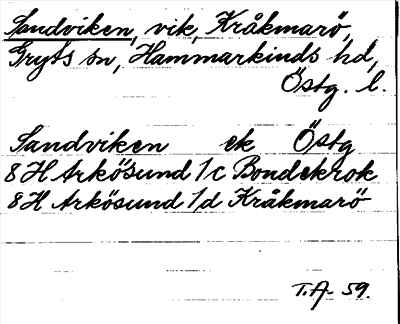 Sandviken, vik, Kråkmarö,
Gryts sn, Hammarkinds hd,
Östg. l.
Sandviken ek Östg
8H Arkösund 1c Bondekrok
8H Arkösund 1d Kråkmarö
T.A. 59.